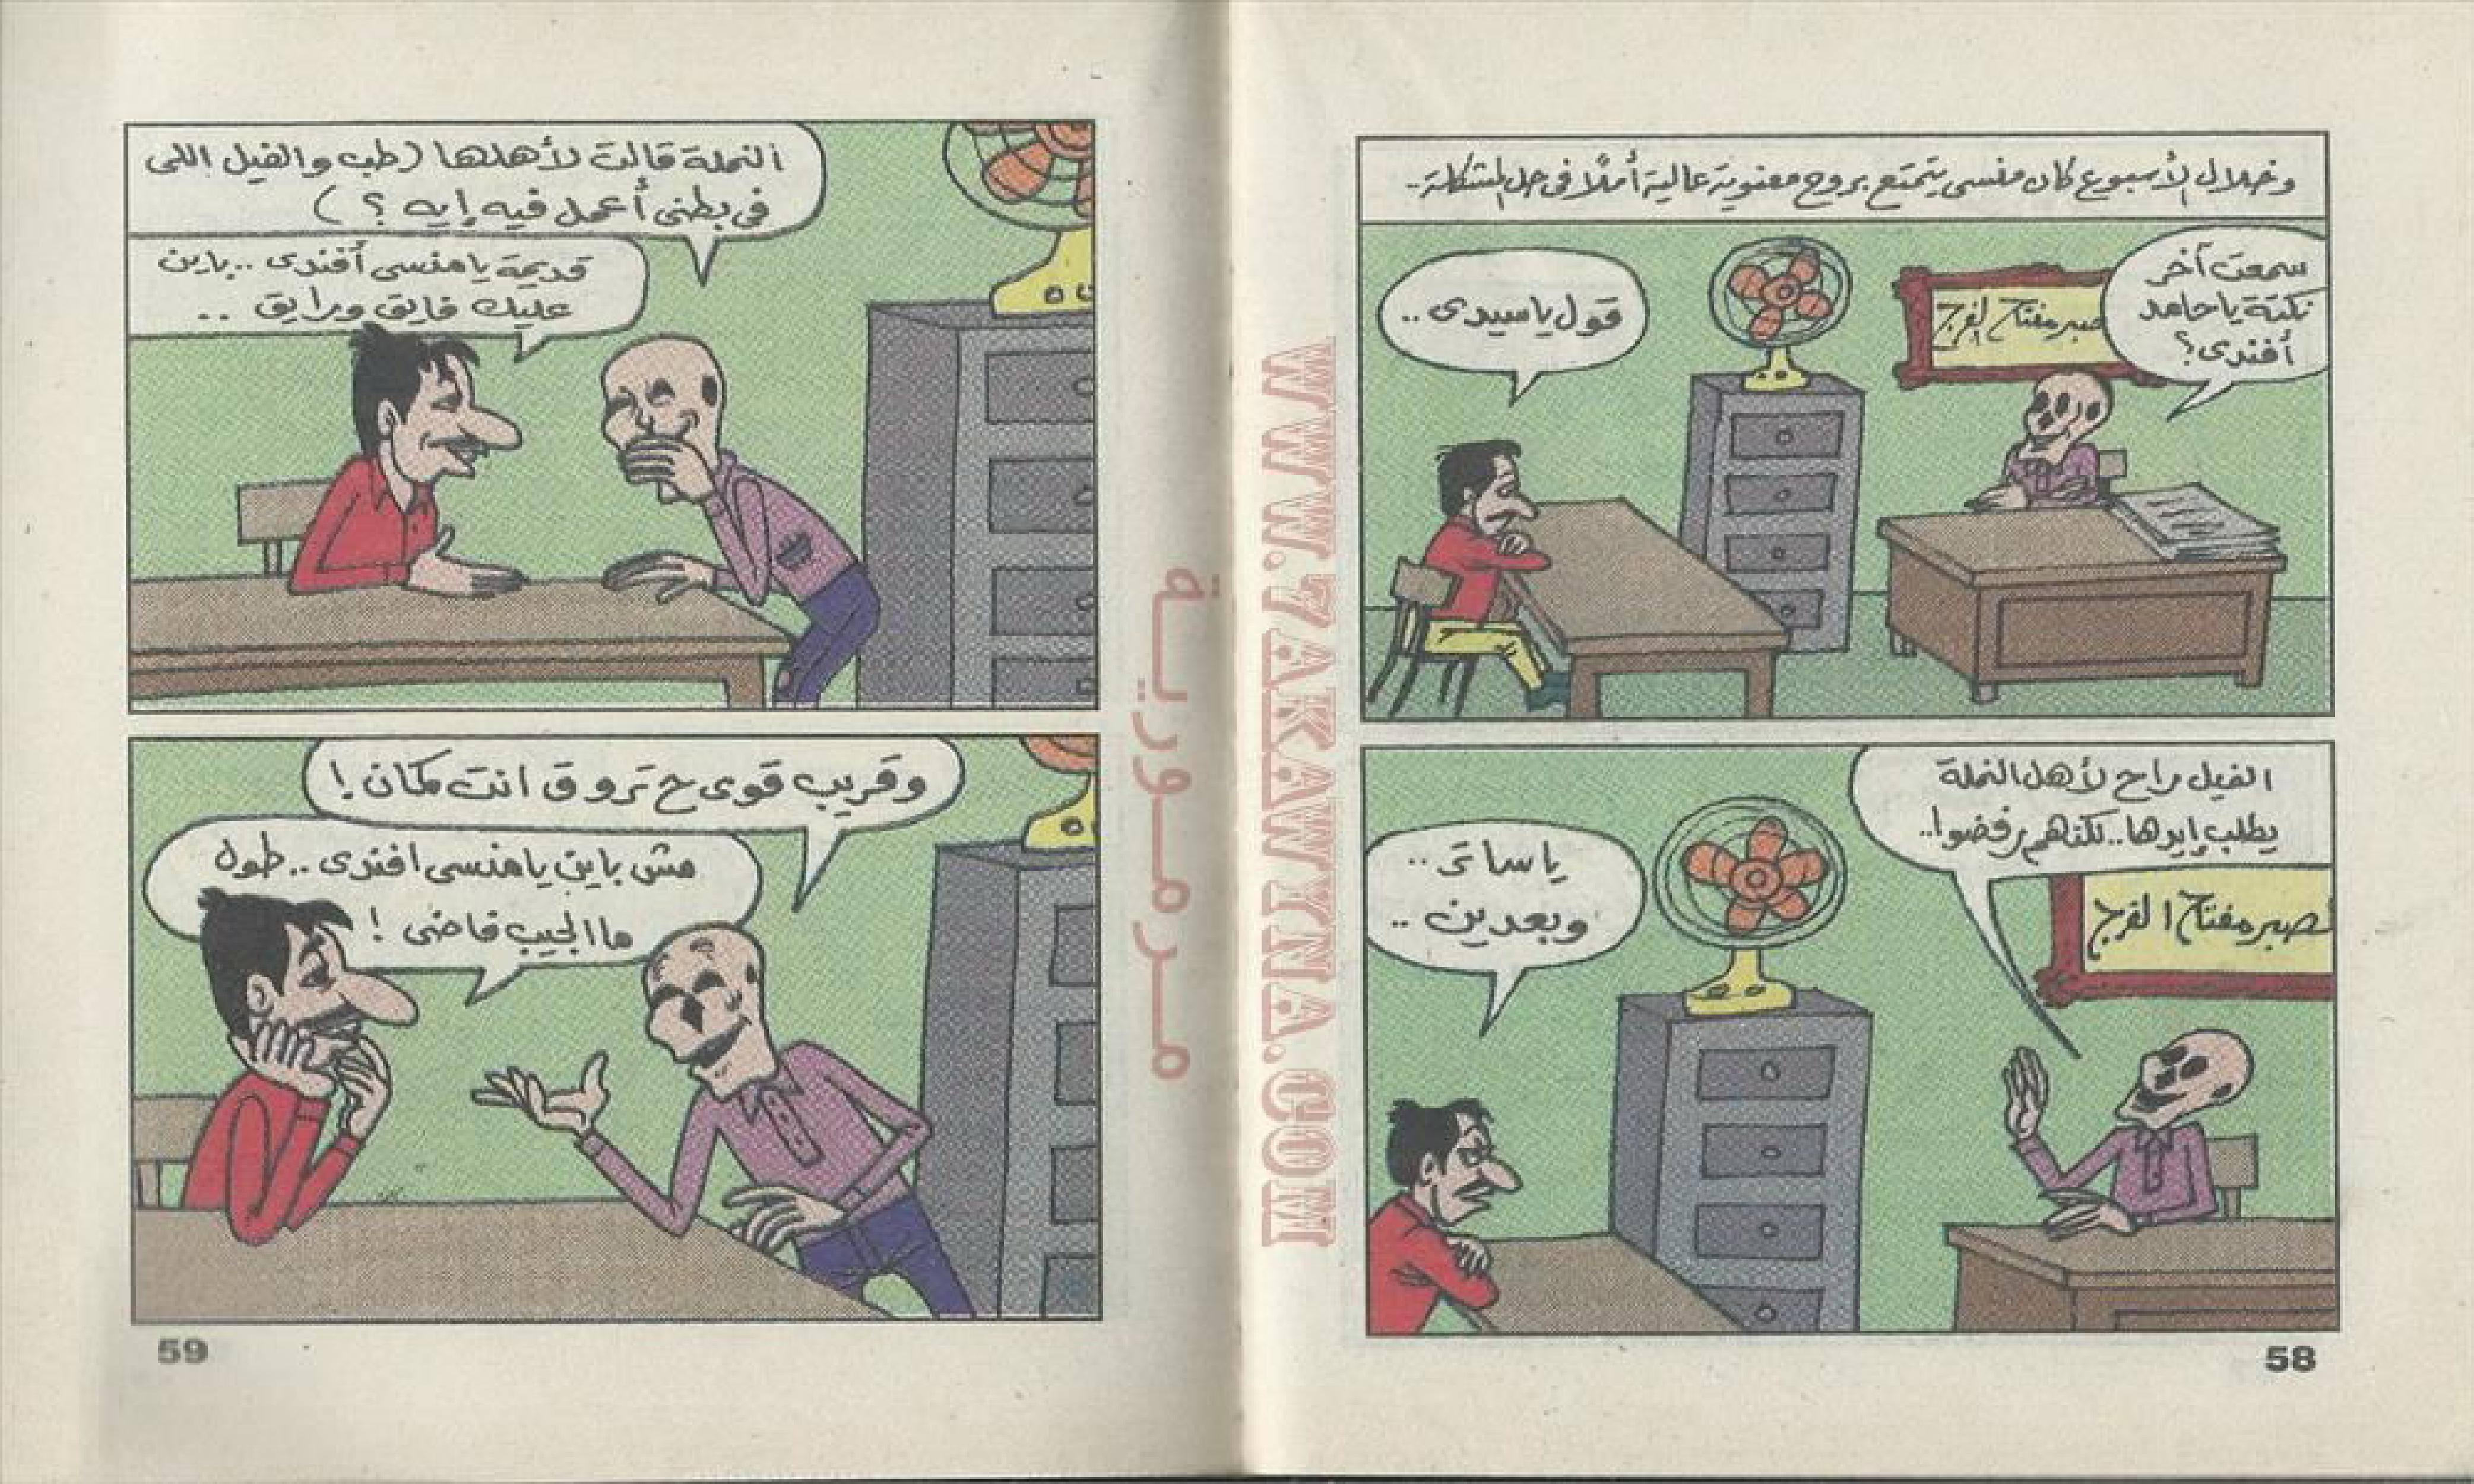 وخلال الأسبوع كان منسى يتمتع بروح معنوية عالية أملًا فى حل المشكلة..
سمعت آخر
نكتة يا حامد
أفندى؟
قول يا سيدى..
صبر مفتاح الفرج
الفيل راح لأهل النملة
يطلب إيدها.. لكنهم رفضوا..
ياساتر..
وبعدين..
لصبر مفتاح الفرج
58
النملة قالت لأهلها (طب والفيل اللى
فى بطنى أعمل فيه إيه؟)
قديمة يا منسى أفندى.. باين
عليك فايق ورايق..
وقريب قوى ح تروق انت كمان!
مش باين يا منسى افندى.. طول
ما الجيب فاضى!
59
مرمورية
WWW.7AKAWYNA.COM